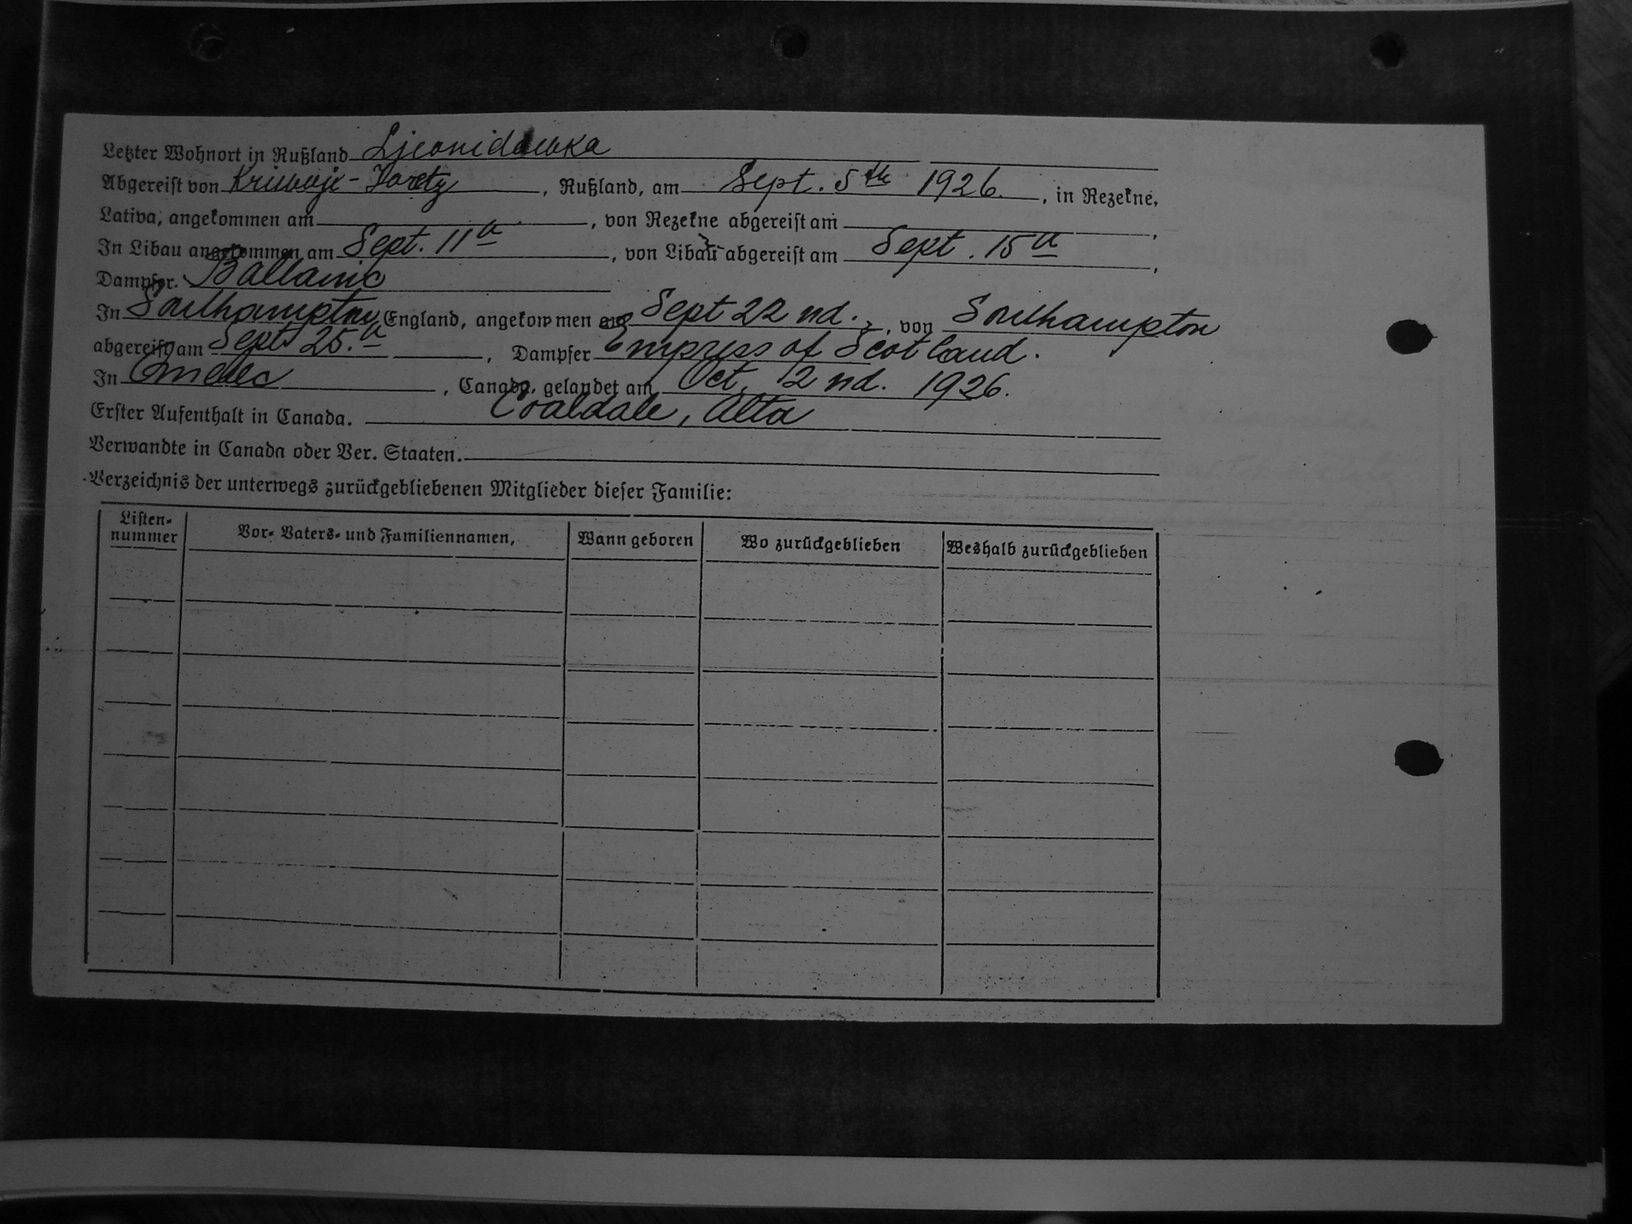 Letzter Wohnort in Rußland Ljeonidowka
Abgereist von Kriwoje-, Rußland, am Sept. 5th 1926., in Rezekne,
Lativa, angekommen am, von Rezekne abgereist am,
In Libau angekommen am Sept. 11th, von Libau abgereist am Sept. 15th,
Dampfer. Baltanic
In Southampton, England, angekommen am Sept 22 nd., von Southampton
abgereist am Sept 25.th, Dampfer Empress of Scotland.
In Quebec, Canada, gelandet am Oct, 2 nd. 1926.
Erster Aufenthalt in Canada. Coaldale, Alta
Verwandte in Canada oder Ver. Staaten.
Verzeichnis der unterwegs zurückgebliebenen Mitglieder dieser Familie:
Listen-nummer Vor- Vaters- und Familiennamen, Wann geboren Wo zurückgeblieben Weshalb zurückgeblieben